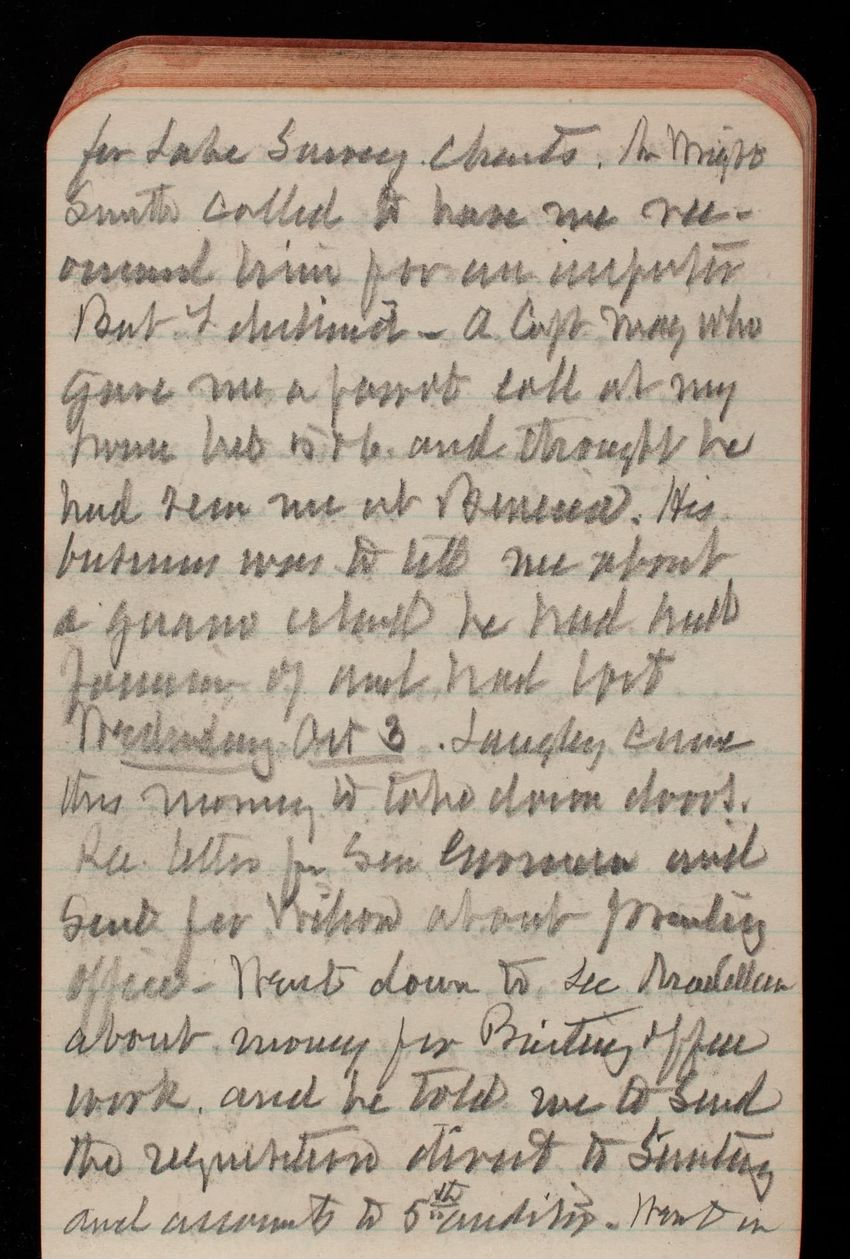 for Lake Survey charts. Mr Wright
Smith called to have me rec-
ommend him for an inspector
But I declined - A Capt May who
gave me a parrot call at my
home bet 5 & 6. and thought he
had seen me at Benecia. His
business was to tell me about
a guano island he had had
possession of and had lost
Wednesday Oct 3. Langley came
this morning to take down doors.
Rec letter fr Sen Gorman and
Sent for Wilson about printing
office - Went down to see
about money for Printing office
work. and he told me to send
the requisition direct to
and accounts to 5th auditor. Went in